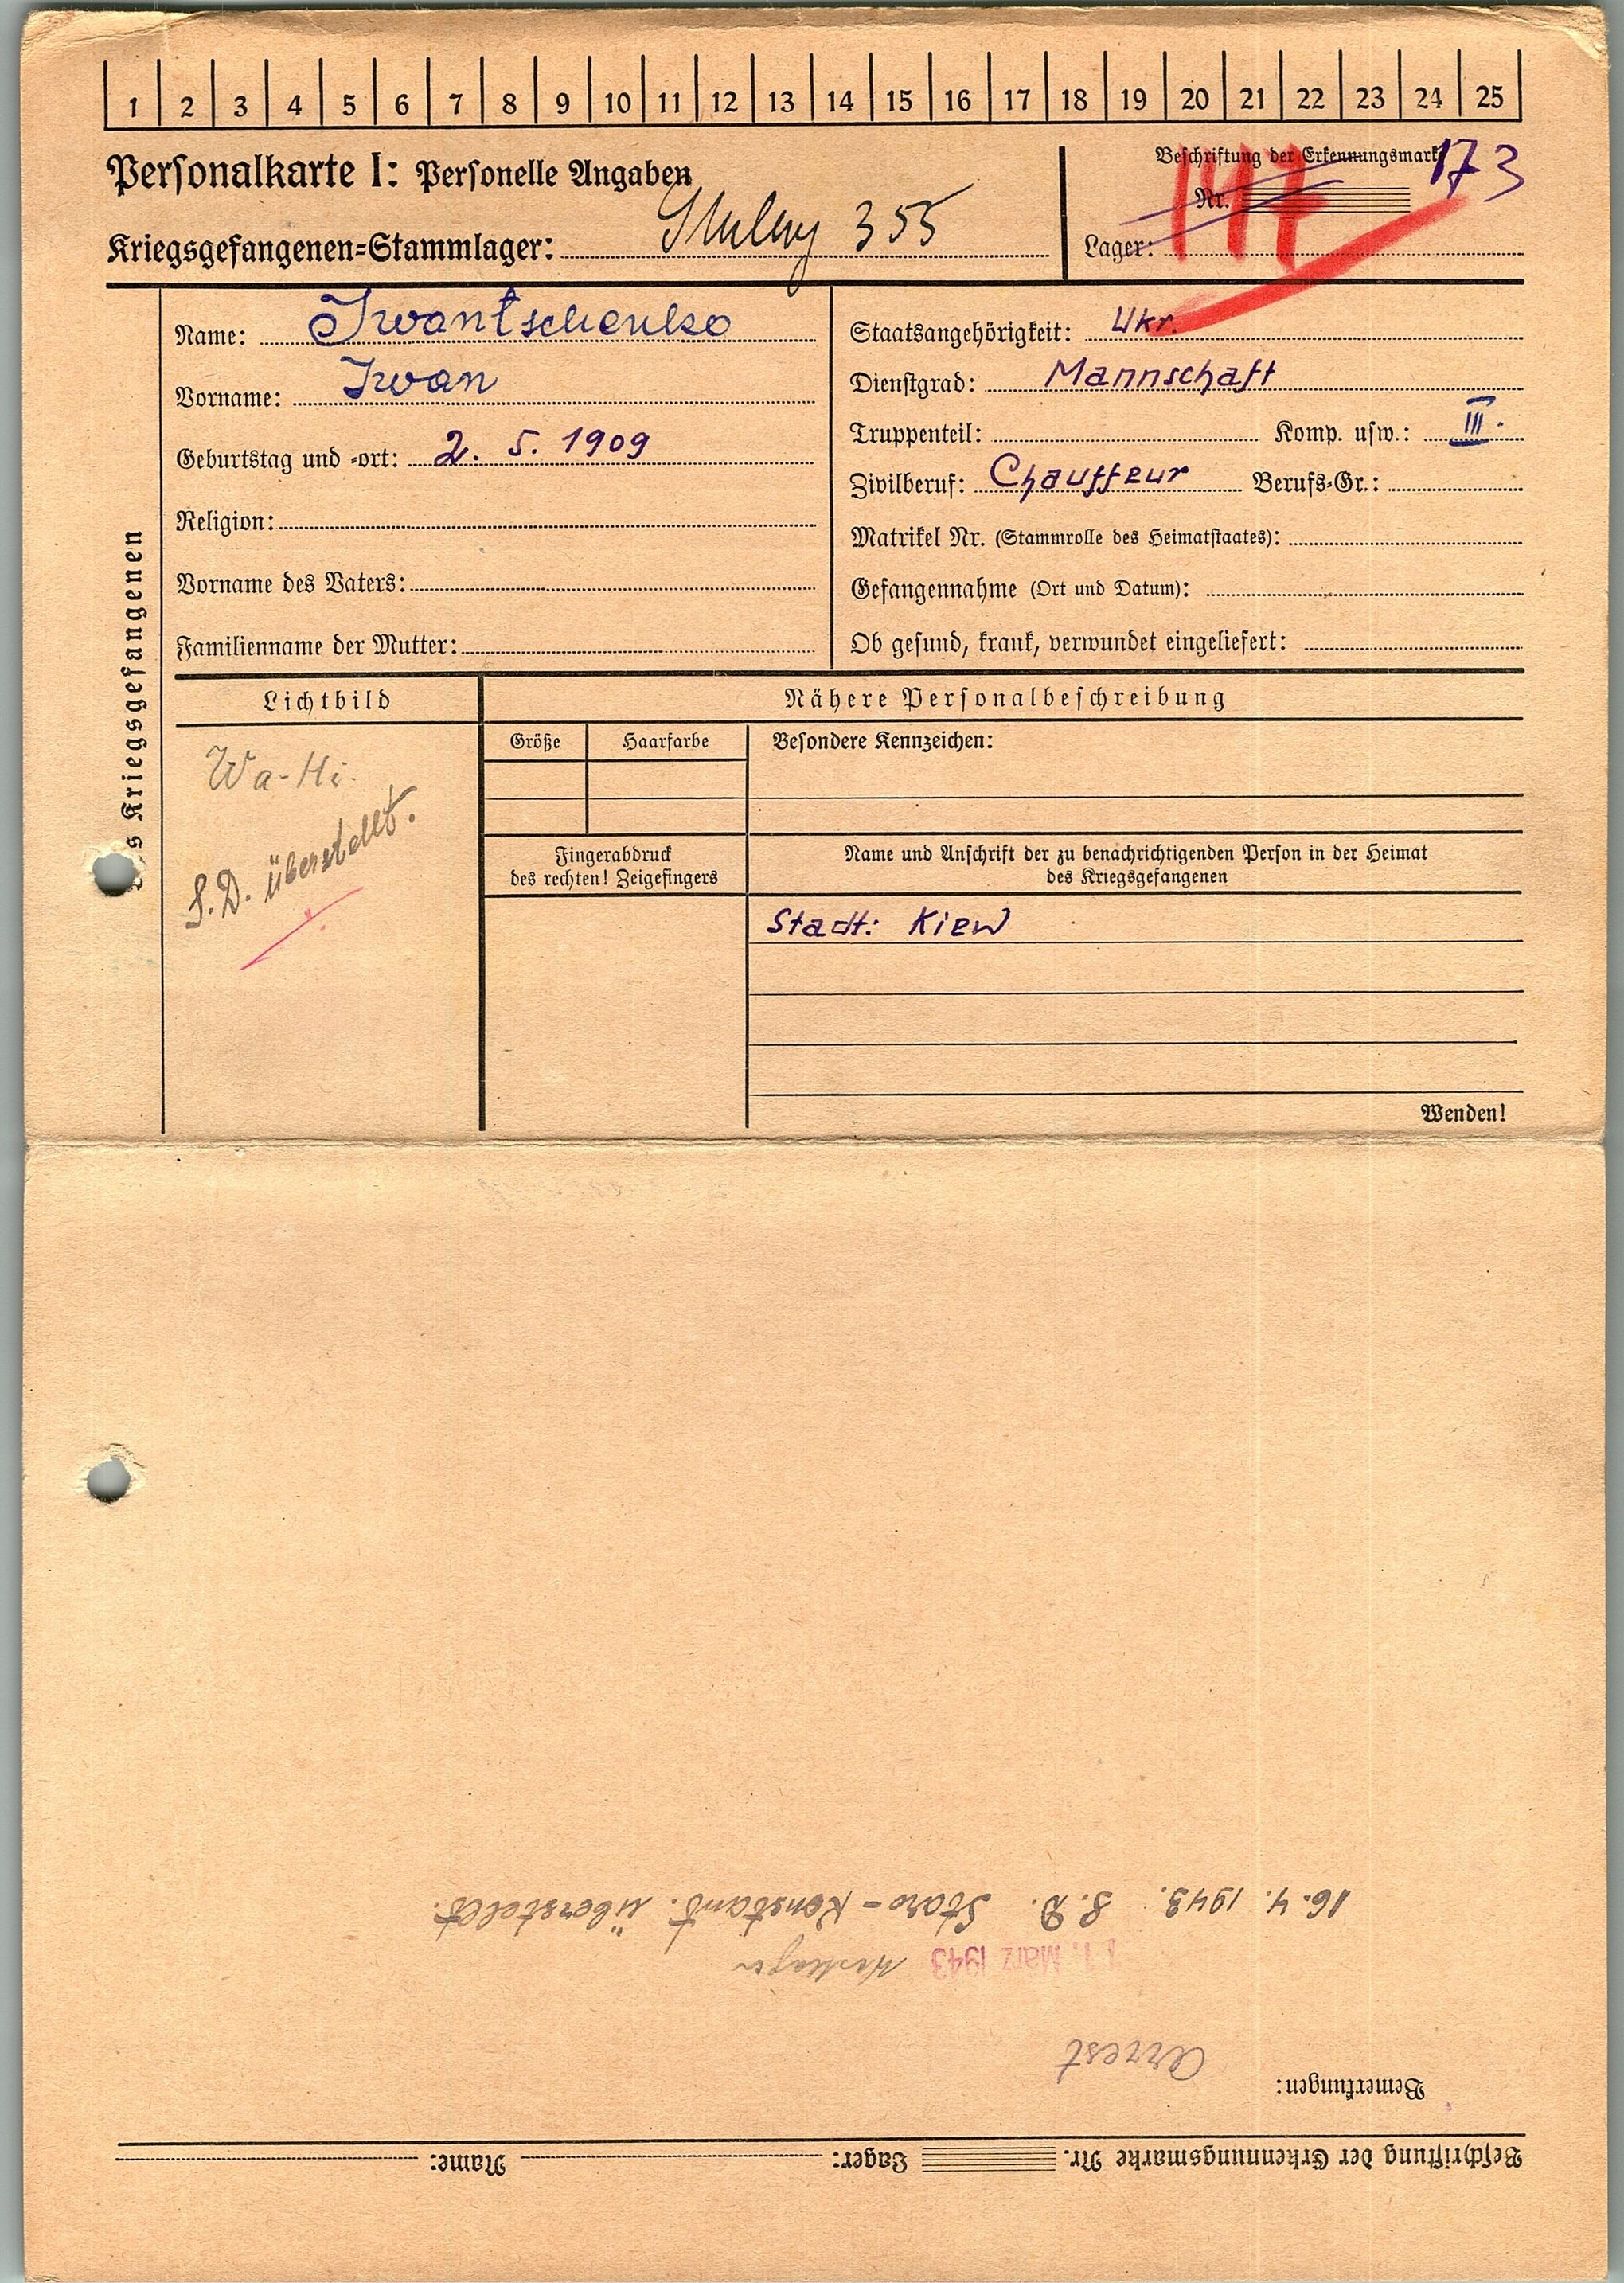 1 2 3 4 5 6 7 8 9 10 11 12 13 14 15 16 17 18 19 20 21 22 23 24 25
Personalkarte I: Personelle Angaben
Kriegsgefangenen-Stammlager: Stalag 355
Beschriftung der Erkennungsmarke
173
Nr.
Lager:
Name: Iwantschenko
Vorname: Iwan
Geburtstag und -ort: 2. 5. 1909
Religion:
Vorname des Vaters:
Familienname der Mutter:
Staatsangehörigkeit: Ukr.
Dienstgrad: Mannschaft
Truppenteil: Komp. usw.: III.
Zivilberuf: Chauffeur Berufs-Gr.:
Matrikel Nr. (Stammrolle des Heimatstaates):
Gefangennahme (Ort und Datum):
Ob gesund, krank, verwundet eingeliefert:
Kriegsgefangenen
Lichtbild
Wa-Hi.
S.D. überstellt.
Nähere Personalbeschreibung
Größe Haarfarbe Besondere Kennzeichen:
Fingerabdruck
des rechten! Zeigefingers
Name und Anschrift der zu benachrichtigenden Person in der Heimat
des Kriegsgefangenen
Stadt: Kiew
Wenden!
Beschriftung der Erkennungsmarke Nr. Lager: Name:
Bemerkungen:
Arrest
1. März 1943
16. 4. 1943. S. D. Staro-Konstant. überstellt.